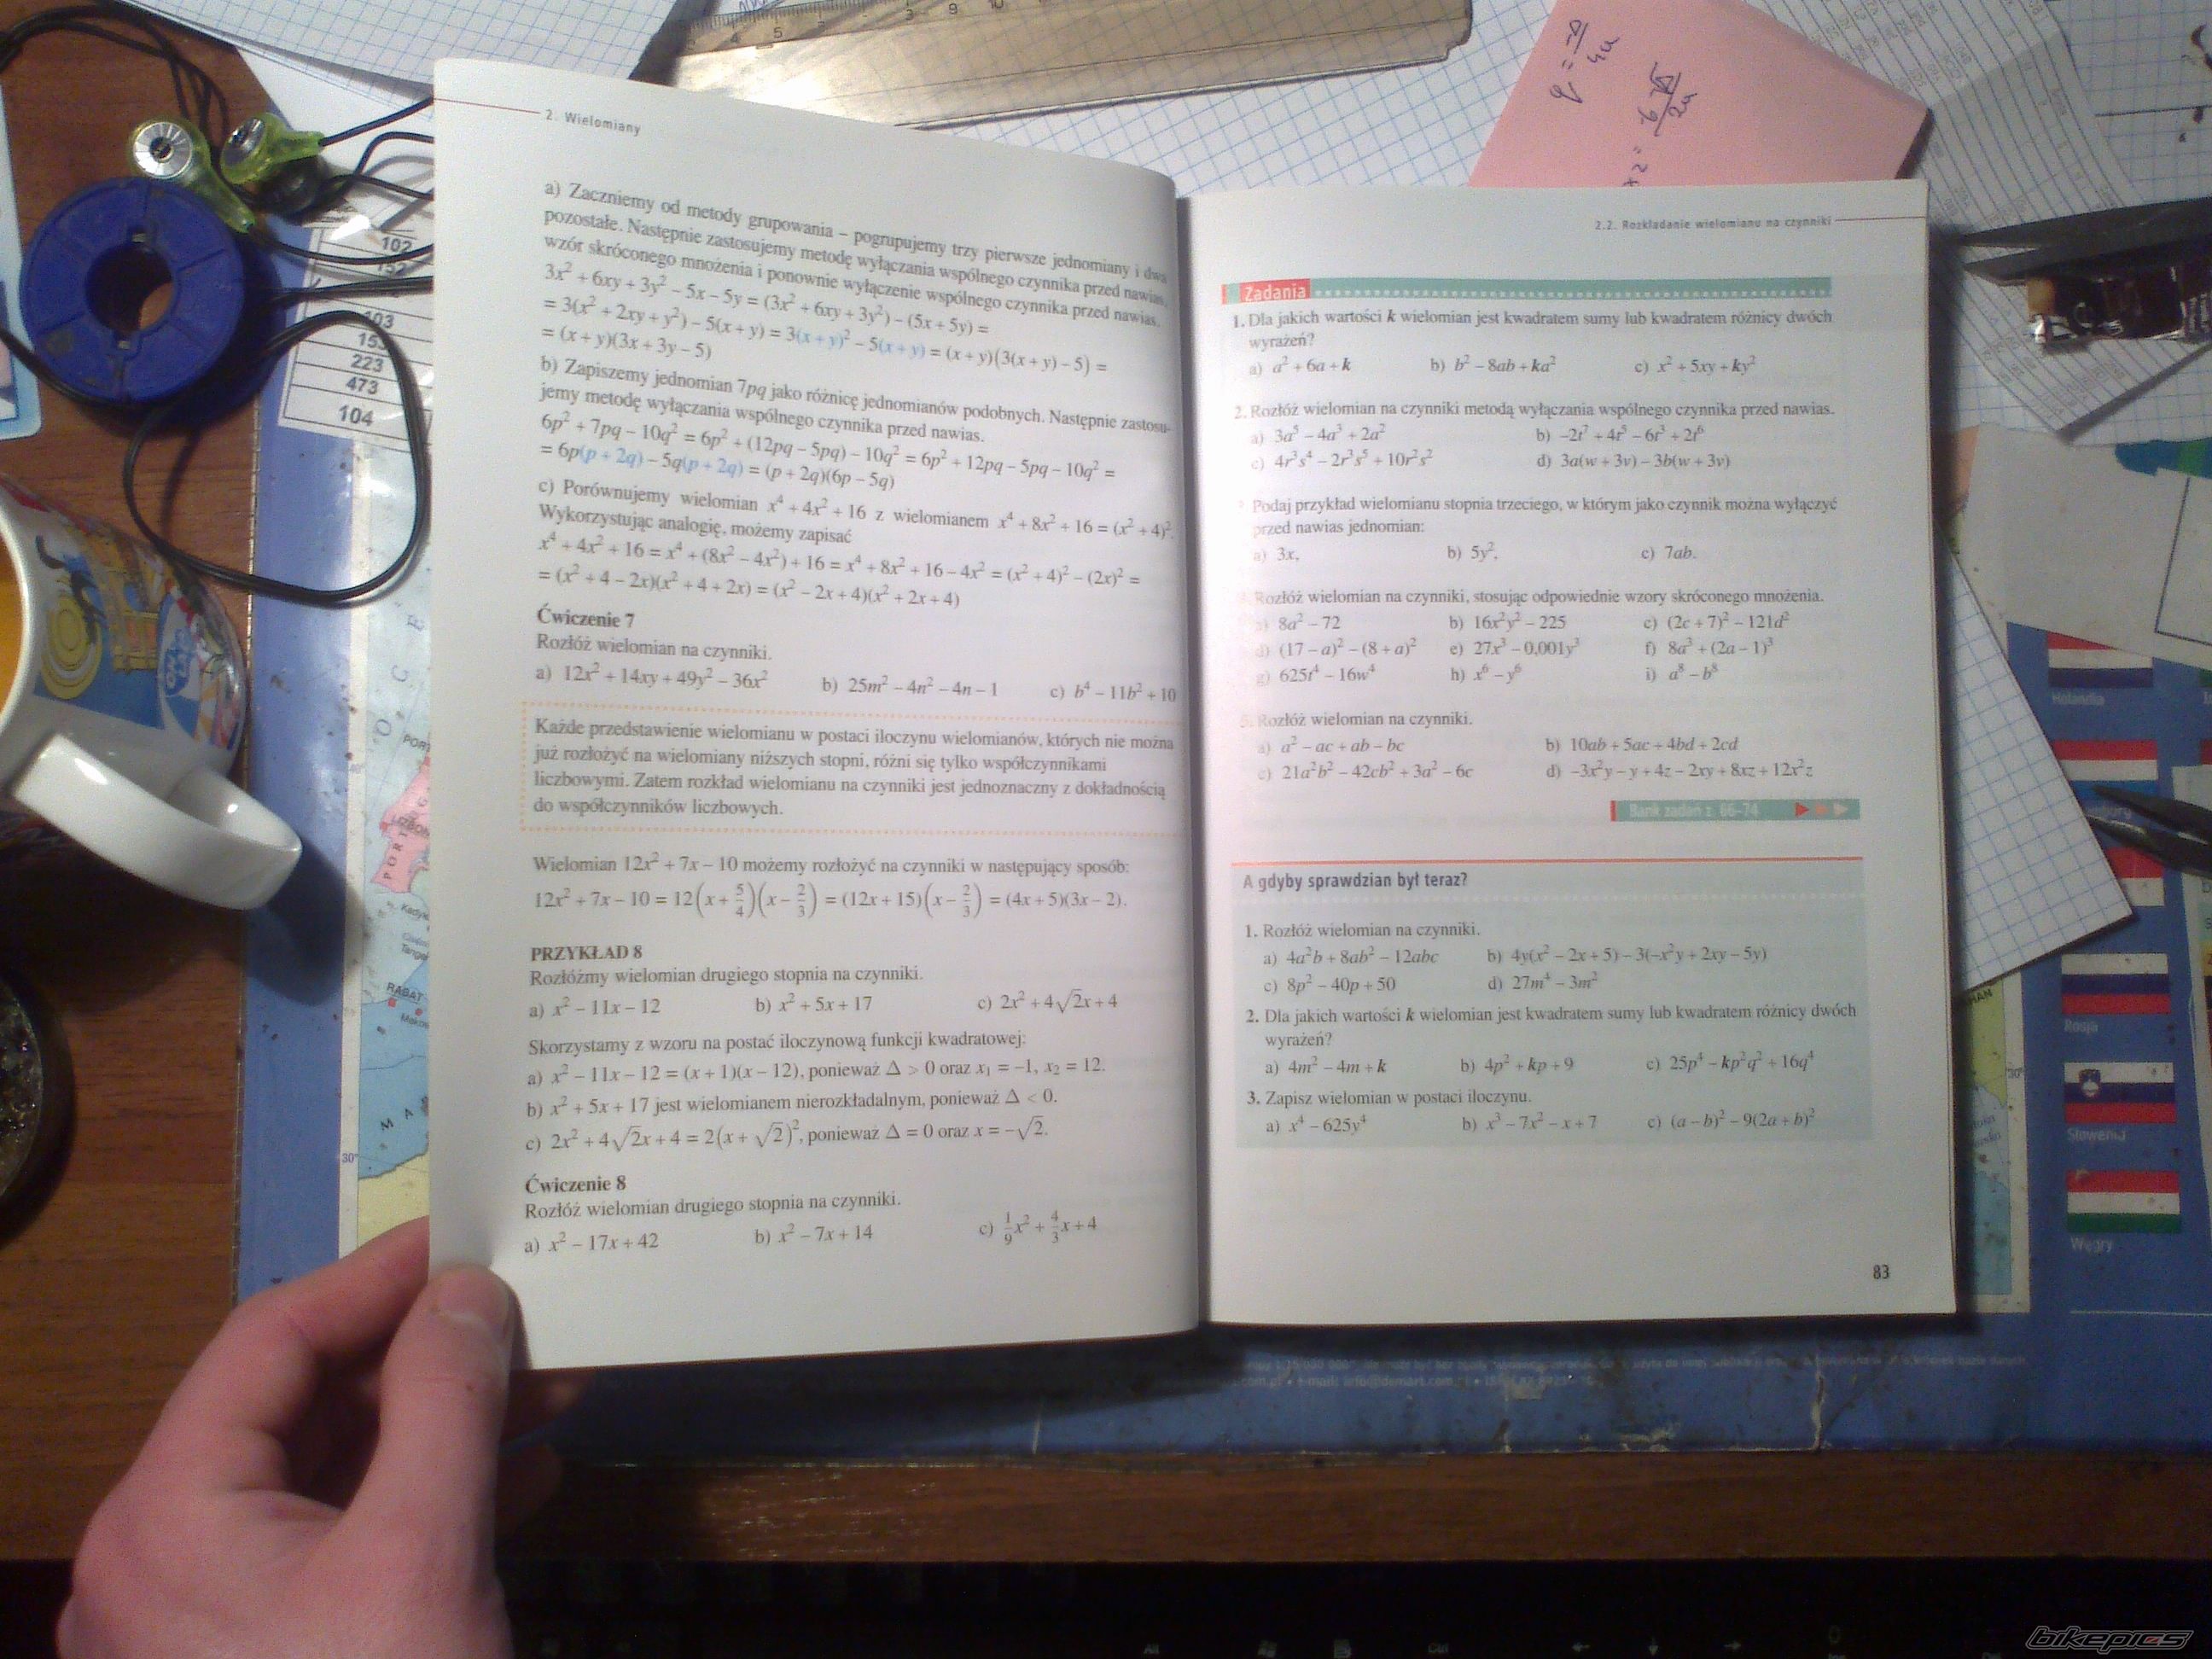 2. Wielomiany
a) Zaczniemy od metody grupowania – pogrupujemy trzy pierwsze jednomiany i dwa
pozostałe. Następnie zastosujemy metodę wyłączania wspólnego czynnika przed nawias,
wzór skróconego mnożenia i ponownie wyłączenie wspólnego czynnika przed nawias.
3x² + 6xy + 3y² – 5x – 5y = (3x² + 6xy + 3y²) – (5x + 5y) =
= 3(x² + 2xy + y²) – 5(x + y) = 3(x + y)² – 5(x + y) = (x + y)(3(x + y) – 5) =
= (x + y)(3x + 3y – 5)
b) Zapiszemy jednomian 7pq jako różnicę jednomianów podobnych. Następnie zastosu-
jemy metodę wyłączania wspólnego czynnika przed nawias.
6p² + 7pq – 10q² = 6p² + (12pq – 5pq) – 10q² = 6p² + 12pq – 5pq – 10q² =
= 6p(p + 2q) – 5q(p + 2q) = (p + 2q)(6p – 5q)
c) Porównujemy wielomian x⁴ + 4x² + 16 z wielomianem x⁴ + 8x² + 16 = (x² + 4)².
Wykorzystując analogię, możemy zapisać
x⁴ + 4x² + 16 = x⁴ + (8x² – 4x²) + 16 = x⁴ + 8x² + 16 – 4x² = (x² + 4)² – (2x)² =
= (x² + 4 – 2x)(x² + 4 + 2x) = (x² – 2x + 4)(x² + 2x + 4)
Ćwiczenie 7
Rozłóż wielomian na czynniki.
a) 12x² + 14xy + 49y² – 36x² b) 25m² – 4n² – 4n – 1 c) b⁴ – 11b² + 10
Każde przedstawienie wielomianu w postaci iloczynu wielomianów, których nie można
już rozłożyć na wielomiany niższych stopni, różni się tylko współczynnikami
liczbowymi. Zatem rozkład wielomianu na czynniki jest jednoznaczny z dokładnością
do współczynników liczbowych.
Wielomian 12x² + 7x – 10 możemy rozłożyć na czynniki w następujący sposób:
12x² + 7x – 10 = 12(x + 5/4)(x – 2/3) = (12x + 15)(x – 2/3) = (4x + 5)(3x – 2).
PRZYKŁAD 8
Rozłóżmy wielomian drugiego stopnia na czynniki.
a) x² – 11x – 12 b) x² + 5x + 17 c) 2x² + 4√2x + 4
Skorzystamy z wzoru na postać iloczynową funkcji kwadratowej:
a) x² – 11x – 12 = (x + 1)(x – 12), ponieważ Δ > 0 oraz x₁ = –1, x₂ = 12.
b) x² + 5x + 17 jest wielomianem nierozkładalnym, ponieważ Δ < 0.
c) 2x² + 4√2x + 4 = 2(x + √2)², ponieważ Δ = 0 oraz x = –√2.
Ćwiczenie 8
Rozłóż wielomian drugiego stopnia na czynniki.
a) x² – 17x + 42 b) x² – 7x + 14 c) 1/9x² + 4/3x + 4
2.2. Rozkładanie wielomianu na czynniki
Zadania
1. Dla jakich wartości k wielomian jest kwadratem sumy lub kwadratem różnicy dwóch
wyrażeń?
a) a² + 6a + k b) b² – 8ab + ka² c) x² + 5xy + ky²
2. Rozłóż wielomian na czynniki metodą wyłączania wspólnego czynnika przed nawias.
a) 3a⁵ – 4a³ + 2a² b) –2t⁷ + 4t⁵ – 6t³ + 2t⁶
c) 4r³s⁴ – 2r³s⁵ + 10r²s² d) 3a(w + 3v) – 3b(w + 3v)
Podaj przykład wielomianu stopnia trzeciego, w którym jako czynnik można wyłączyć
przed nawias jednomian:
a) 3x, b) 5y², c) 7ab.
Rozłóż wielomian na czynniki, stosując odpowiednie wzory skróconego mnożenia.
a) 8a² – 72 b) 16x²y² – 225 c) (2c + 7)² – 121d²
d) (17 – a)² – (8 + a)² e) 27x³ – 0,001y³ f) 8a³ + (2a – 1)³
g) 625t⁴ – 16w⁴ h) x⁶ – y⁶ i) a⁸ – b⁸
5. Rozłóż wielomian na czynniki.
a) a² – ac + ab – bc b) 10ab + 5ac + 4bd + 2cd
c) 21a²b² – 42cb² + 3a² – 6c d) –3x²y – y + 4z – 2xy + 8xz + 12x²z
Bank zadań z. 66–74
A gdyby sprawdzian był teraz?
1. Rozłóż wielomian na czynniki.
a) 4a²b + 8ab² – 12abc b) 4y(x² – 2x + 5) – 3(–x²y + 2xy – 5y)
c) 8p² – 40p + 50 d) 27m⁴ – 3m²
2. Dla jakich wartości k wielomian jest kwadratem sumy lub kwadratem różnicy dwóch
wyrażeń?
a) 4m² – 4m + k b) 4p² + kp + 9 c) 25p⁴ – kp²q² + 16q⁴
3. Zapisz wielomian w postaci iloczynu.
a) x⁴ – 625y⁴ b) x³ – 7x² – x + 7 c) (a – b)² – 9(2a + b)²
83
102
152
103
223
473
104
RABAT
30°
Holandia
Rosja
Słowenia
Węgry
bikepics